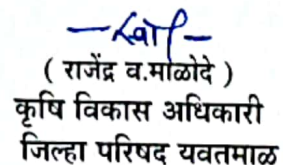 ( राजेंद्र व.माळोदे )
कृषि विकास अधिकारी
जिल्हा परिषद यवतमाळ